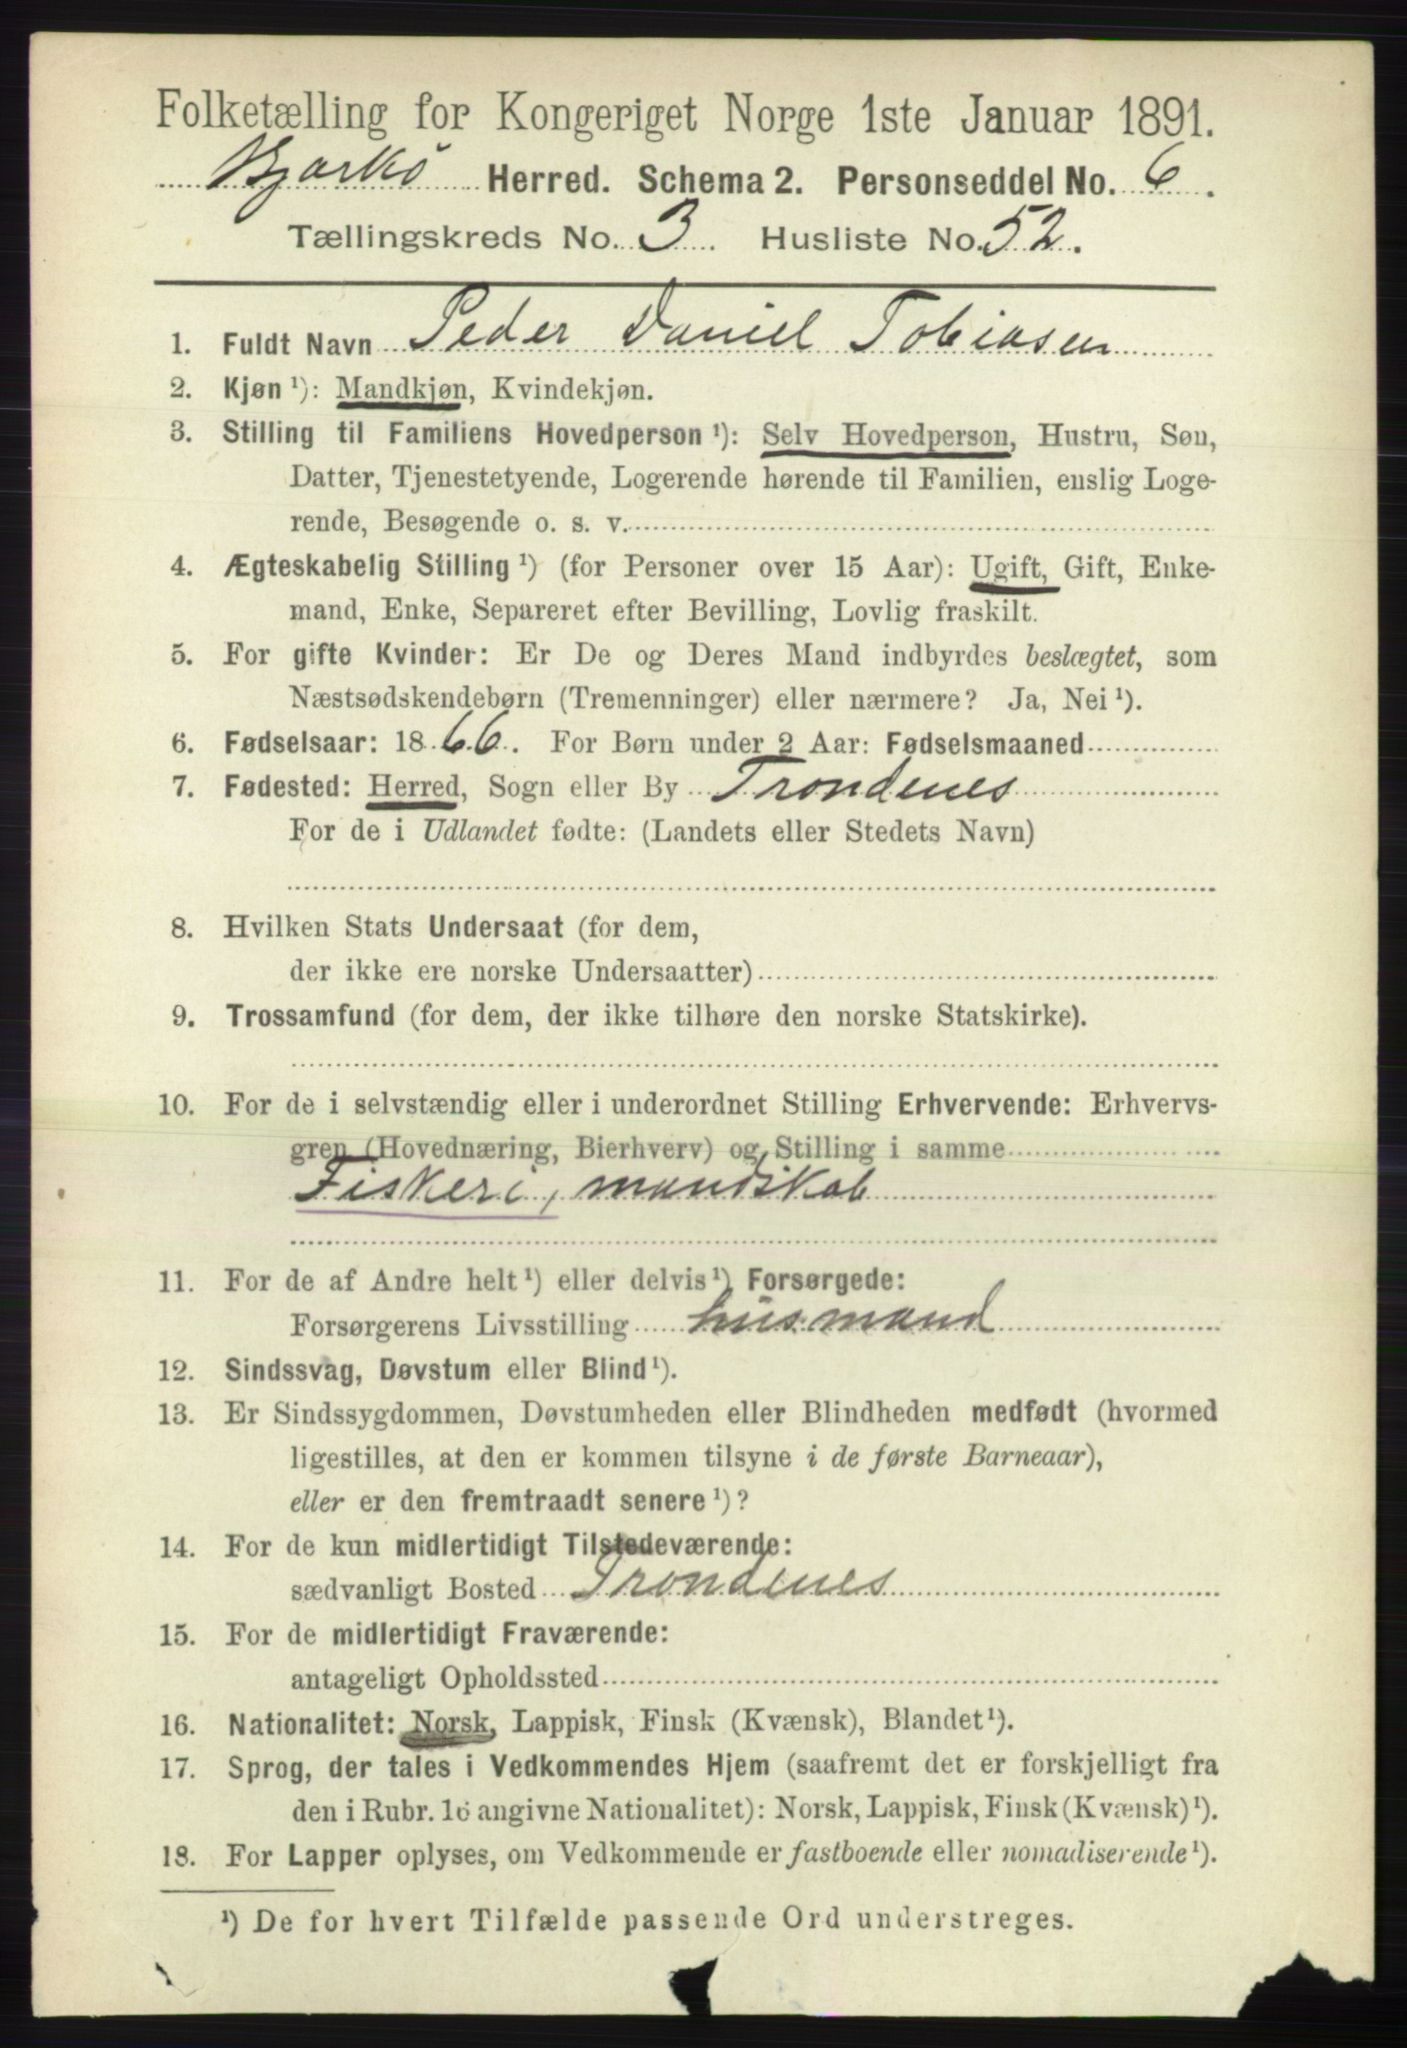 Folketælling for Kongeriget Norge 1ste Januar 1891.
Bjarkö Herred. Schema 2. Personseddel No. 6.
Tællingskreds No. 3 Husliste No. 52.
1. Fuldt Navn Peder Daniel Tobiasen
2. Kjøn ¹): Mandkjøn, Kvindekjøn.
3. Stilling til Familiens Hovedperson ¹): Selv Hovedperson, Hustru, Søn,
Datter, Tjenestetyende, Logerende hørende til Familien, enslig Loge-
rende, Besøgende o. s. v.
4. Ægteskabelig Stilling ¹) (for Personer over 15 Aar): Ugift, Gift, Enke-
mand, Enke, Separeret efter Bevilling, Lovlig fraskilt.
5. For gifte Kvinder: Er De og Deres Mand indbyrdes beslægtet, som
Næstsødskendebørn (Tremenninger) eller nærmere? Ja, Nei ¹).
6. Fødselsaar: 1866. For Børn under 2 Aar: Fødselsmaaned
7. Fødested: Herred, Sogn eller By Trondenes
For de i Udlandet fødte: (Landets eller Stedets Navn)
8. Hvilken Stats Undersaat (for dem,
der ikke ere norske Undersaatter)
9. Trossamfund (for dem, der ikke tilhøre den norske Statskirke).
10. For de i selvstændig eller i underordnet Stilling Erhvervende: Erhvervs-
gren (Hovednæring, Bierhverv) og Stilling i samme
Fiskeri, mandskab
11. For de af Andre helt ¹) eller delvis ¹) Forsørgede:
Forsørgerens Livsstilling husmand
12. Sindssvag, Døvstum eller Blind ¹).
13. Er Sindssygdommen, Døvstumheden eller Blindheden medfødt (hvormed
ligestilles, at den er kommen tilsyne i de første Barneaar),
eller er den fremtraadt senere ¹)?
14. For de kun midlertidigt Tilstedeværende:
sædvanligt Bosted Trondenes
15. For de midlertidigt Fraværende:
antageligt Opholdssted
16. Nationalitet: Norsk, Lappisk, Finsk (Kvænsk), Blandet ¹).
17. Sprog, der tales i Vedkommendes Hjem (saafremt det er forskjelligt fra
den i Rubr. 16 angivne Nationalitet): Norsk, Lappisk, Finsk (Kvænsk) ¹).
18. For Lapper oplyses, om Vedkommende er fastboende eller nomadiserende ¹).
¹) De for hvert Tilfælde passende Ord understreges.